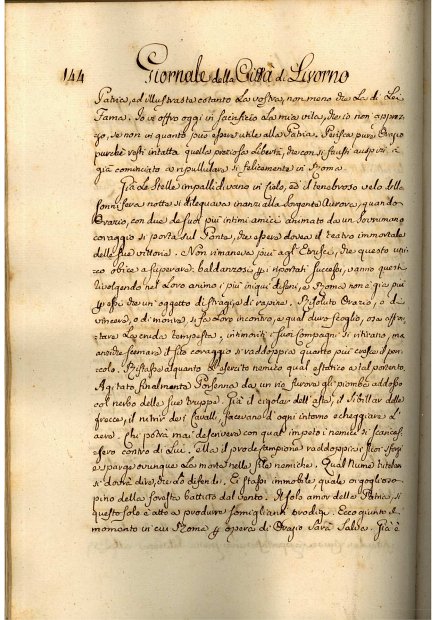 144 Giornale della Città di Livorno
Patria, ed illustraste cotanto la vostra, non meno che la di Lei
Fama. Io v'offro oggi in sacrifizio la mia vita, che io non apprez-
zo, se non in quanto può essere utile alla Patria. Perisca pure Orazio
purché resti intatta quella preziosa Libertà, che con sì fausti auspizi, è
già cominciata a ripullulare sì felicemente in Roma.
Già le Stelle impallidivano in Cielo, ed il tenebroso velo della
sonnifera notte si dileguava innanzi alla sorgente Aurora, quando
Orazio, con due de suoi più intimi amici animato da un sovrumano
coraggio si porta sul Ponte, che essere dovea il teatro immortale
delle sue vittorie. Non rimaneva più agl'Etrusci, che questo uni-
co obice a superare: baldanzosi p i riportati successi, vanno questi
rivolgendo nel loro animo i più iniqui diseni, e Roma non è già più
p essi che un'oggetto di stragi, e di rapine. Risoluto Orazio, o di
vincere, o di morire, si fa loro incontro, e qual duro scoglio, osa affron-
tare la cruda tempesta, intimoriti i suoi Compagni si ritirano, ma
anziche scemare il suo coraggio si raddoppia quanto più cresce il peri-
colo. Ristassi alquanto l'esercito nemico qual estatico a tal portento.
Agitato finalmente Porsenna da un rio furore gli piomba addosso
col nerbo delle sue truppe. Già il cigolar dell'aste, il sibillar delle
frecce, il nitrir de' Cavalli, facevano d'ogni intorno echeggiare l'
aere. Chi potrà mai descrivere con qual impeto i nemici si scaricas-
sero contro di Lui. Ma il prode campione raddoppia i suoi sforzi
e sparge ovunque la morte nelle file nemiche. Qual Nume
si dovrà dire, che lo difende. Ei stassi immobile quale orgoglioso
pino della foresta battuto dal vento. Il solo amor della Patria, sì
questo solo è atto a produrre somiglianti prodigi. Ecco giunto il
momento in cui Roma p opera di Orazio sarà salva. Già è